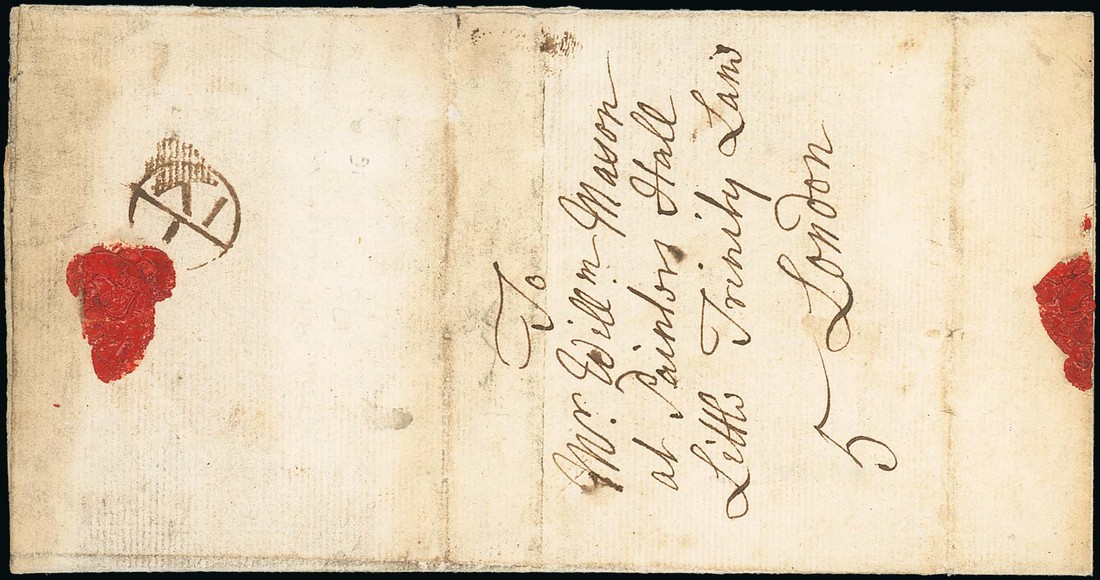 To
Mr. Willm Maxon
at Paintors Hall
Little Trinity Lane
London
5